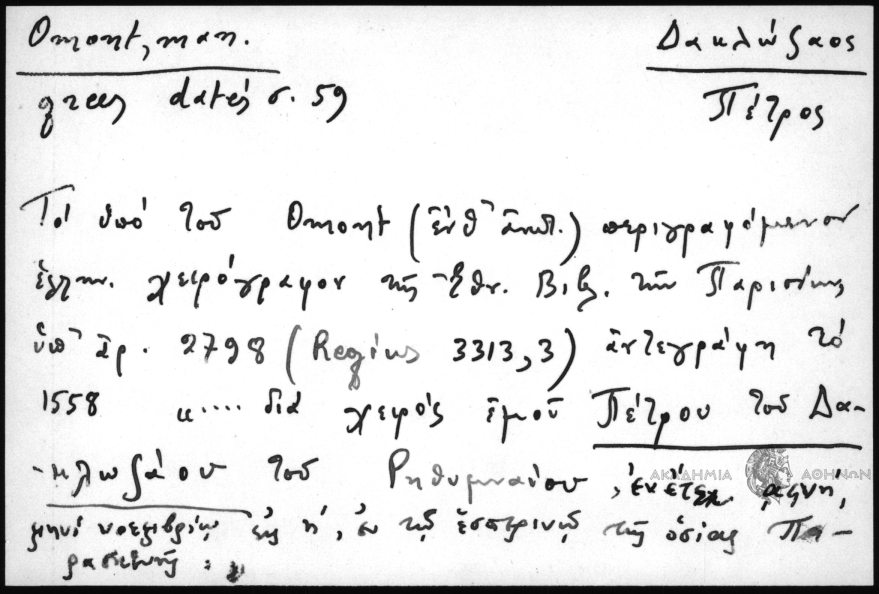 Omont, man. Δακλώζαος
grecs datés σ. 59 Πέτρος
Τό ὑπό τοῦ Omont (ἔνθ' ἀνωτ.) περιγραφόμενον
ἑλλην. χειρόγραφον τῆς Ἐθν. Βιβλ. τῶν Παρισίων
ὑπ' ἀρ. 2798 (Regius 3313,3) ἀντεγράφη τό
1558 κ.... διά χειρός ἐμοῦ Πέτρου τοῦ Δα-
-κλωζάου τοῦ Ρηθυμναίου, ἐν ἔτει ͵αφνη,
μηνί νοεμβρίῳ εἰς η', ἐν τῷ ἑσπερινῷ τῆς ὁσίας Πα-
ρασκευῆς:
ΑΚΑΔΗΜΙΑ ΑΘΗΝΩΝ